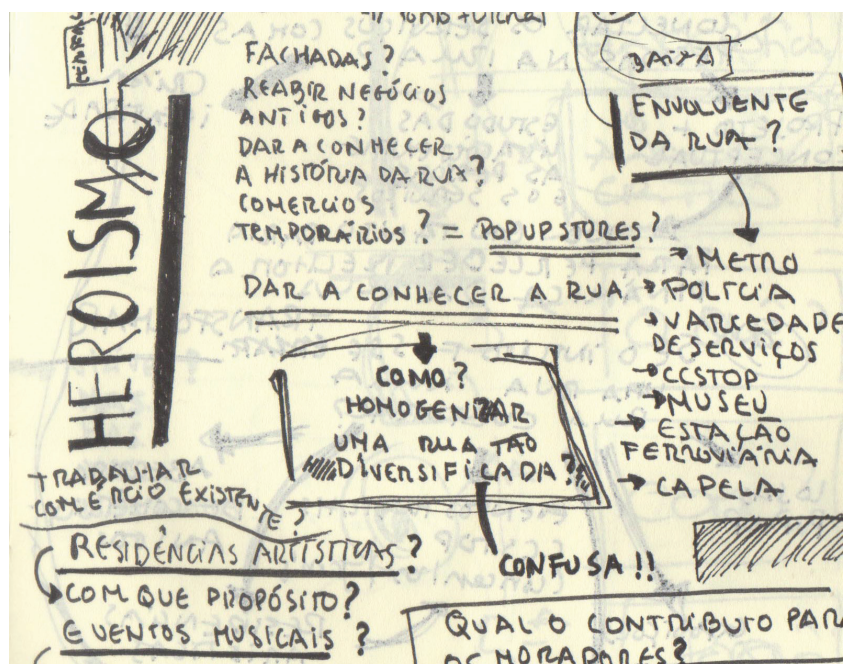 HEROISMO
FACHADAS?
REABRIR NEGÓCIOS
ANTIGOS?
DAR A CONHECER
A HISTÓRIA DA RUA?
COMERCIOS
TEMPORÁRIOS? = POP UP STORES?
DAR A CONHECER A RUA
COMO?
HOMOGENIZAR
UMA RUA TÃO
DIVERSIFICADA?
CONFUSA!!
BAIXA
ENVOLVENTE
DA RUA?
→ METRO
→ POLICIA
→ VARIEDADE
DE SERVIÇOS
→ CCSTOP
→ MUSEU
→ ESTAÇÃO
FERROVIÁRIA
→ CAPELA
TRABALHAR
COMÉRCIO EXISTENTE?
RESIDÊNCIAS ARTÍSTICAS?
COM QUE PROPÓSITO?
EVENTOS MUSICAIS?
QUAL O CONTRIBUTO PARA
OS MORADORES?